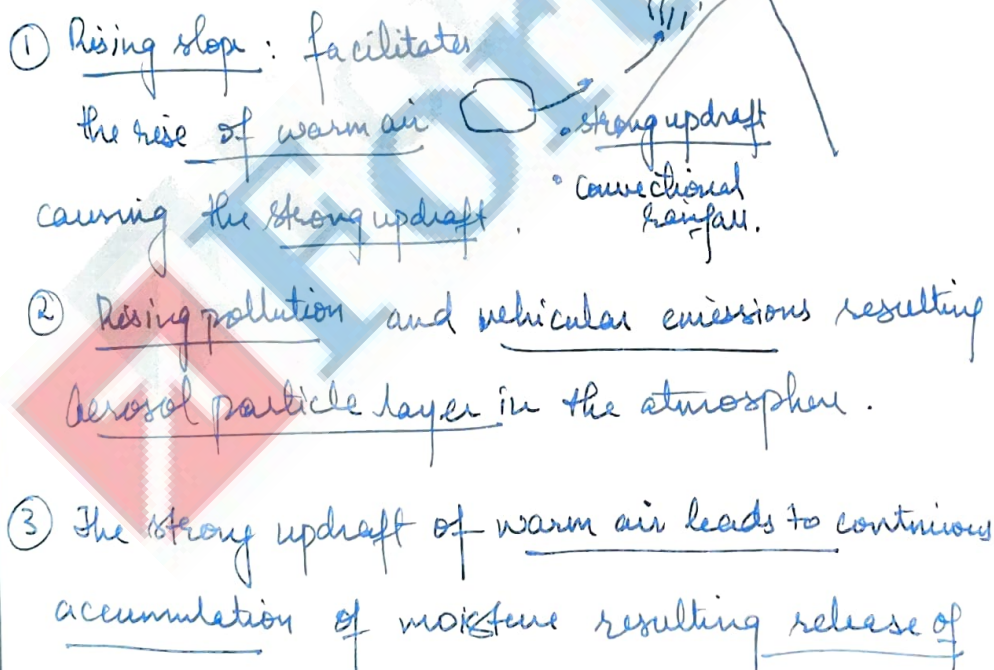 ① Rising slope : facilitates
the rise of warm air
causing the strong updraft.
• strong updraft
• convectional
rainfall.
② Rising pollution and vehicular emissions resulting
aerosol particle layer in the atmosphere.
③ The strong updraft of warm air leads to continuous
accumulation of moisture resulting release of